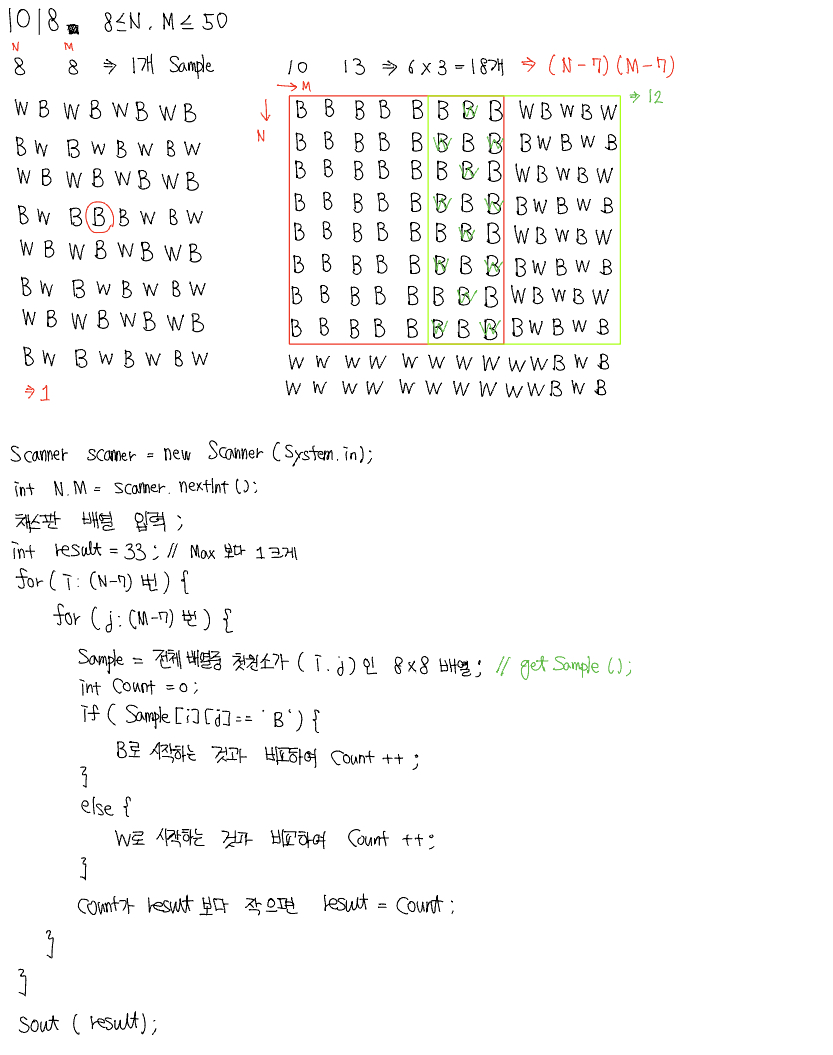 1018. 8≤N, M≤50
N M
8 8 ⇒ 1개 Sample
W B W B W B W B
B W B W B W B W
W B W B W B W B
B W B B B W B W
W B W B W B W B
B W B W B W B W
W B W B W B W B
B W B W B W B W
⇒ 1
10 13 ⇒ 6 x 3 = 18개 ⇒ (N-7)(M-7)
→ M
↓ N
⇒ 12
B B B B B B B B W B W B W
B B B B B B B B B W B W B
B B B B B B B B W B W B W
B B B B B B B B B W B W B
B B B B B B B B W B W B W
B B B B B B B B B W B W B
B B B B B B B B W B W B W
B B B B B B B B B W B W B
W W W W W W W W W W B W B
W W W W W W W W W W B W B
Scanner scanner = new Scanner (System.in);
int N.M = scanner.nextInt();
체스판 배열 입력;
int result = 33; // Max 보다 1 크게
for ( i : (N-7) 번 ) {
for ( j : (M-7) 번 ) {
Sample = 전체 배열중 첫원소가 ( i. j ) 인 8x8 배열; // getSample ();
int Count = 0;
if ( Sample [i][j] == 'B' ) {
B로 시작하는 것과 비교하여 Count ++;
}
else {
W로 시작하는 것과 비교하여 Count ++;
}
Count가 result 보다 작으면 result = Count;
}
}
Sout ( result);